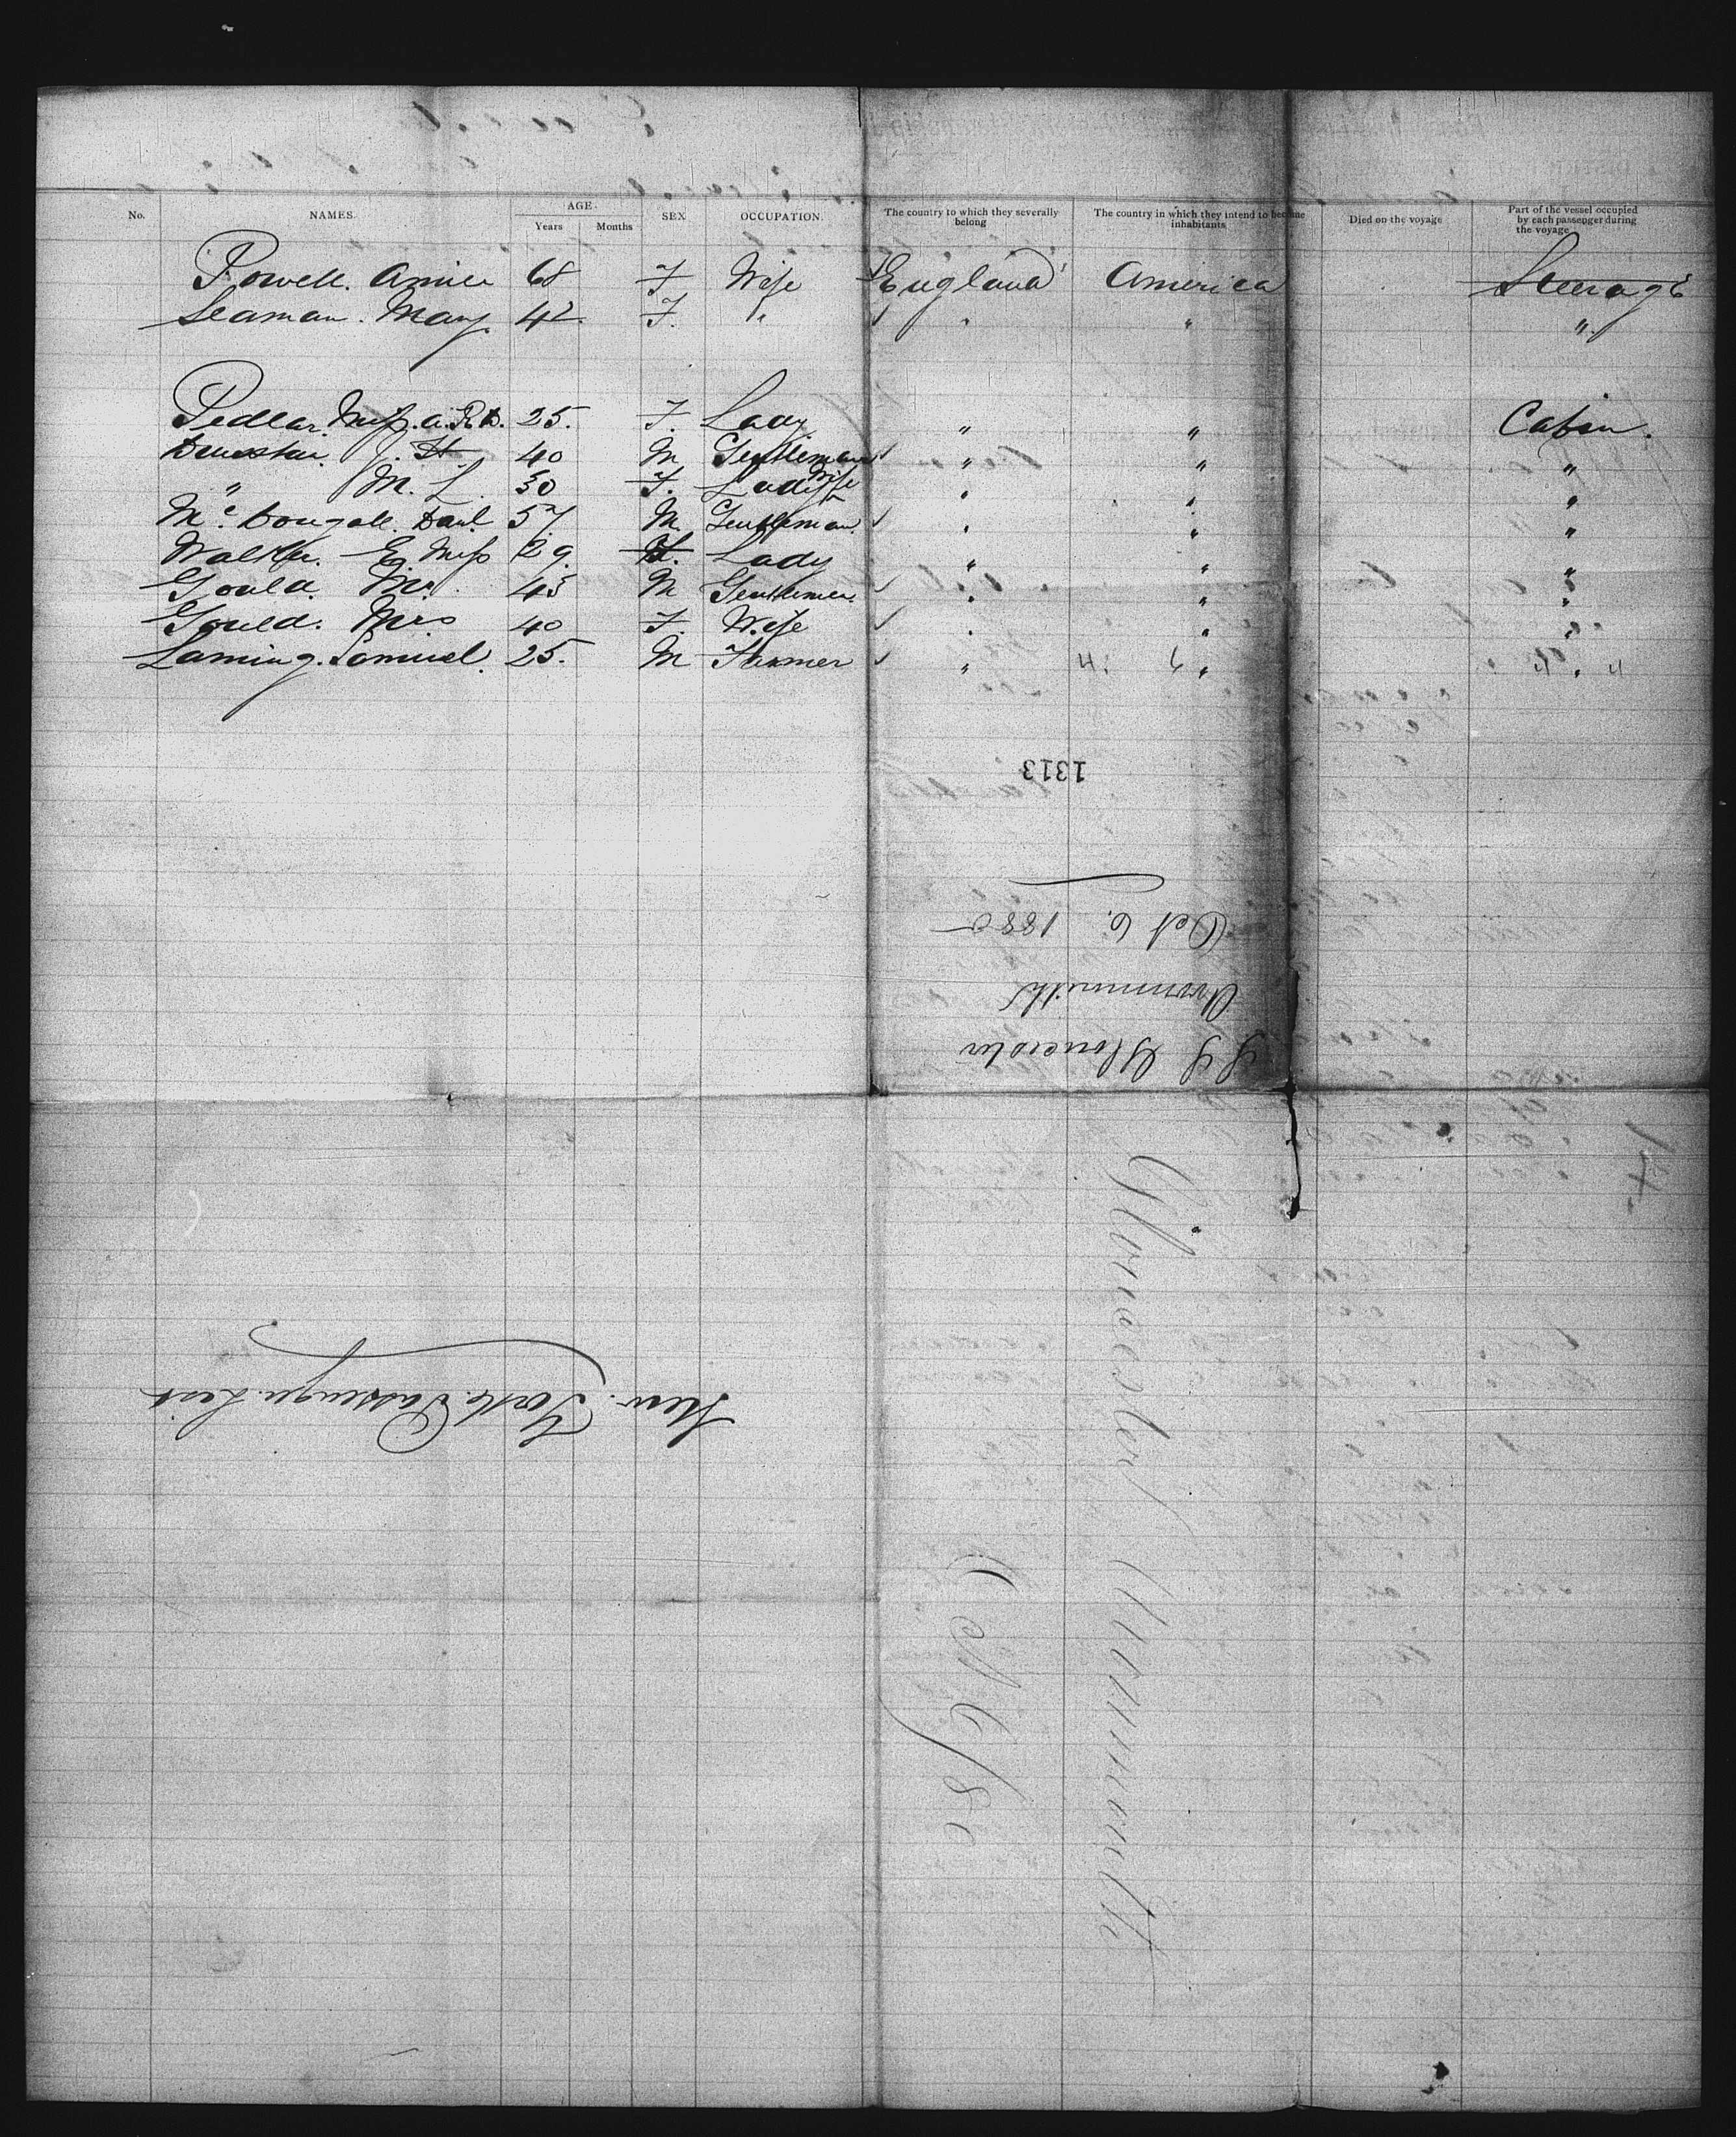 No. NAMES. AGE. Years Months SEX OCCUPATION. The country to which they severally belong The country in which they intend to become inhabitants Died on the voyage Part of the vessel occupied by each passenger during the voyage
Powell. Annie 68 F Wife England America Steerage
Seaman. Mary. 42. F. " " " "
Pedlar. Miss. A. R. 25. F. Lady " " Cabin.
J. H. 40 M Gentleman " " "
" M. L. 30 F. Lady Wife " " "
Mc. Dougall. Danl 57 M. Gentleman " " "
Walker. E. Miss 29. F. Lady " " "
Gould. Mr. 45 M Gentleman " " "
Gould. Mrs 40 F. Wife " " "
Laming. Samuel. 25. M Farmer " " "
1313
SS Gloucester
Avonmouth
Oct 6. 1880
New. York. Passenger. List
Gloucester
Avonmouth